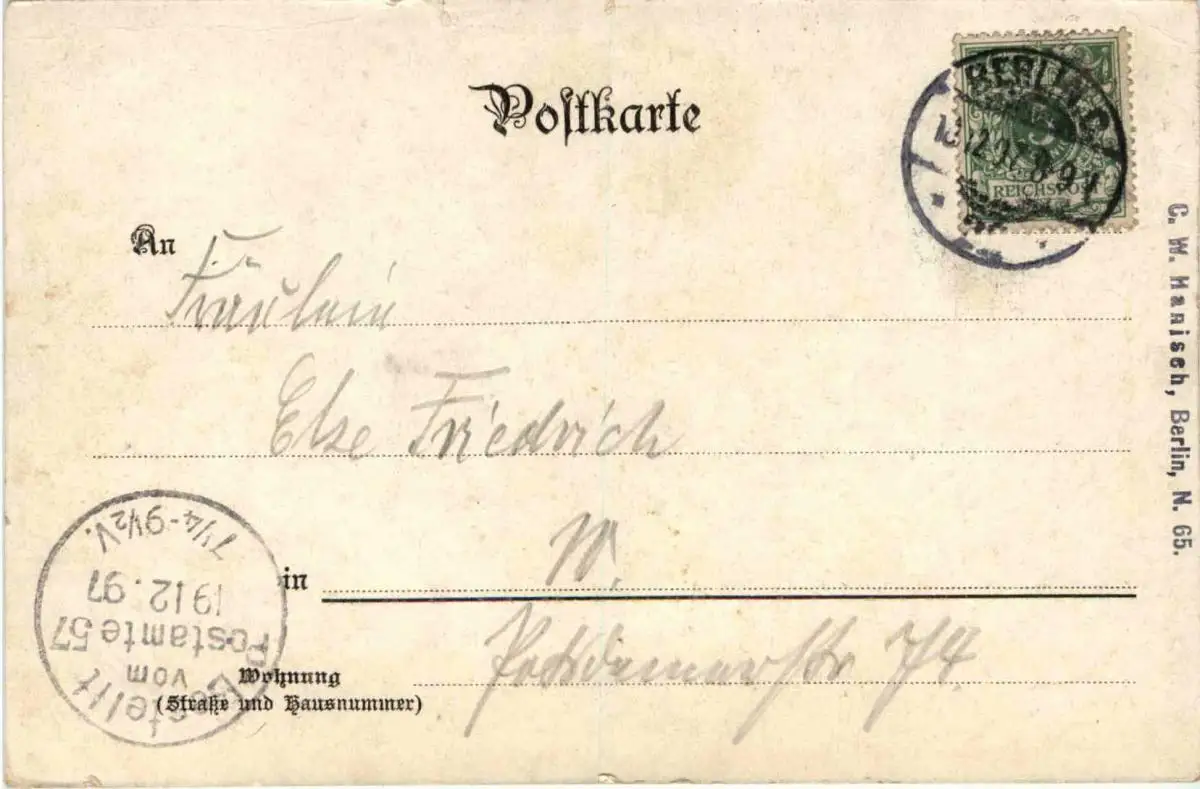 Postkarte
BERLIN C.
12.97. 8-9 V
REICHSPOST
An
Fräulein
Else Friedrich
in
W.
Wohnung
(Straße und Hausnummer)
Potsdamerstr 74.
Bestellt
vom
Postamte 57
19 12. 97
7 1/4-9 1/2 V.
C. W. Hanisch, Berlin, N. 65.